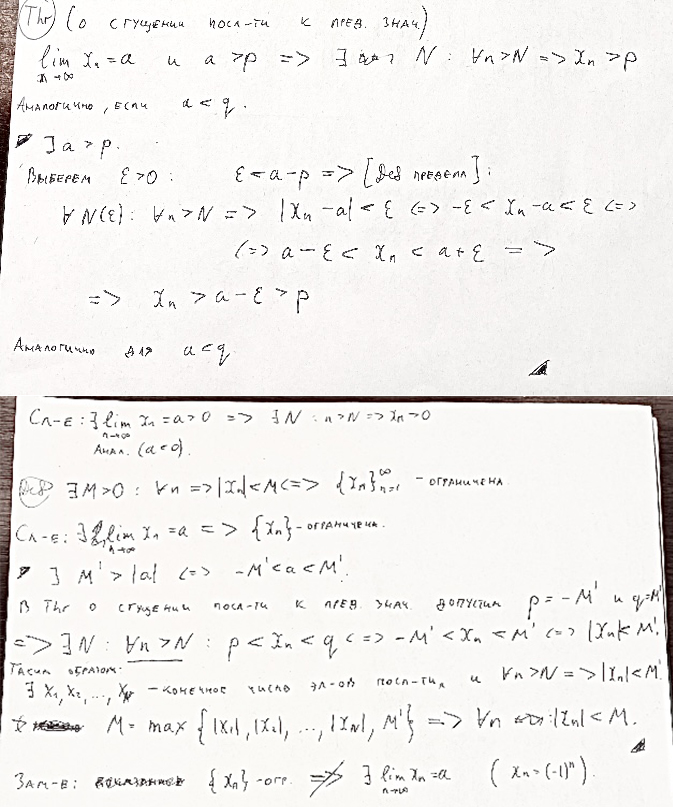 Thr (о сгущении посл-ти к пред. знач.)
lim xₙ = a и a > p => ∃ N : ∀n > N => xₙ > p
n→∞
Аналогично, если a < q.
▼ ] a > p.
Выберем ε > 0 : ε < a - p => [Def предела] :
∀ N(ε) : ∀n > N => |xₙ - a| < ε <=> -ε < xₙ - a < ε <=>
<=> a - ε < xₙ < a + ε =>
=> xₙ > a - ε > p
Аналогично для a < q
Сл-е : ∃ lim xₙ = a > 0 => ∃ N : n > N => xₙ > 0
n→∞
Анал. (a < 0).
Def ∃ M > 0 : ∀n => |xₙ| < M <=> {xₙ}ₙ₌₁^∞ - ограничена.
Сл-е : ∃ lim xₙ = a => {xₙ} - ограничена.
n→∞
▼ ] M' > |a| <=> -M' < a < M'.
В Thr о сгущении посл-ти к пред. знач. допустим p = -M' и q = M'
=> ∃ N : ∀n > N : p < xₙ < q <=> -M' < xₙ < M' <=> |xₙ| < M'.
Таким образом.
∃ x₁, x₂, ..., x_N - конечное число эл-ов посл-ти и ∀n > N => |xₙ| < M'
M = max {|x₁|, |x₂|, ..., |x_N|, M'} => ∀n : |xₙ| < M.
Зам-е : {xₙ} - огр. ≠> ∃ lim xₙ = a (xₙ = (-1)ⁿ).
n→∞